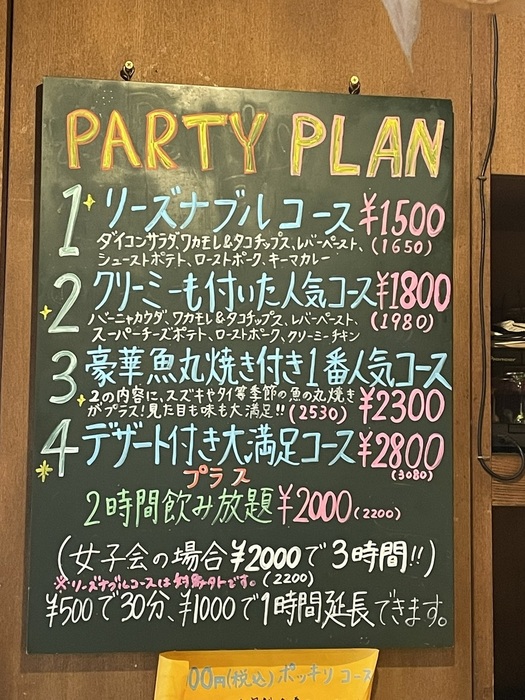 PARTY PLAN
1 リーズナブルコース ¥1500
ダイコンサラダ、ワカモレ&タコチップス、レバーペースト、(1650)
シューストポテト、ローストポーク、キーマカレー
2 クリーミーも付いた人気コース ¥1800
バーニャカウダ、ワカモレ&タコチップス、レバーペースト、(1980)
スーパーチーズポテト、ローストポーク、クリーミーチキン
3 豪華魚丸焼き付き1番人気コース
2の内容に、スズキやタイ等季節の魚の丸焼き
がプラス!見た目も味も大満足!! (2530) ¥2300
4 デザート付き大満足コース ¥2800
プラス (3080)
2時間飲み放題 ¥2000 (2200)
(女子会の場合¥2000で3時間!!)
※リーズナブルコースは対象外です。(2200)
¥500で30分、¥1000で1時間延長できます。
00円(税込)ポッキリコース